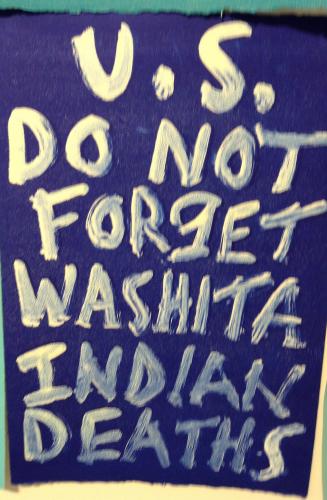 U.S.
DO NOT
FORGET
WASHITA
INDIAN
DEATHS